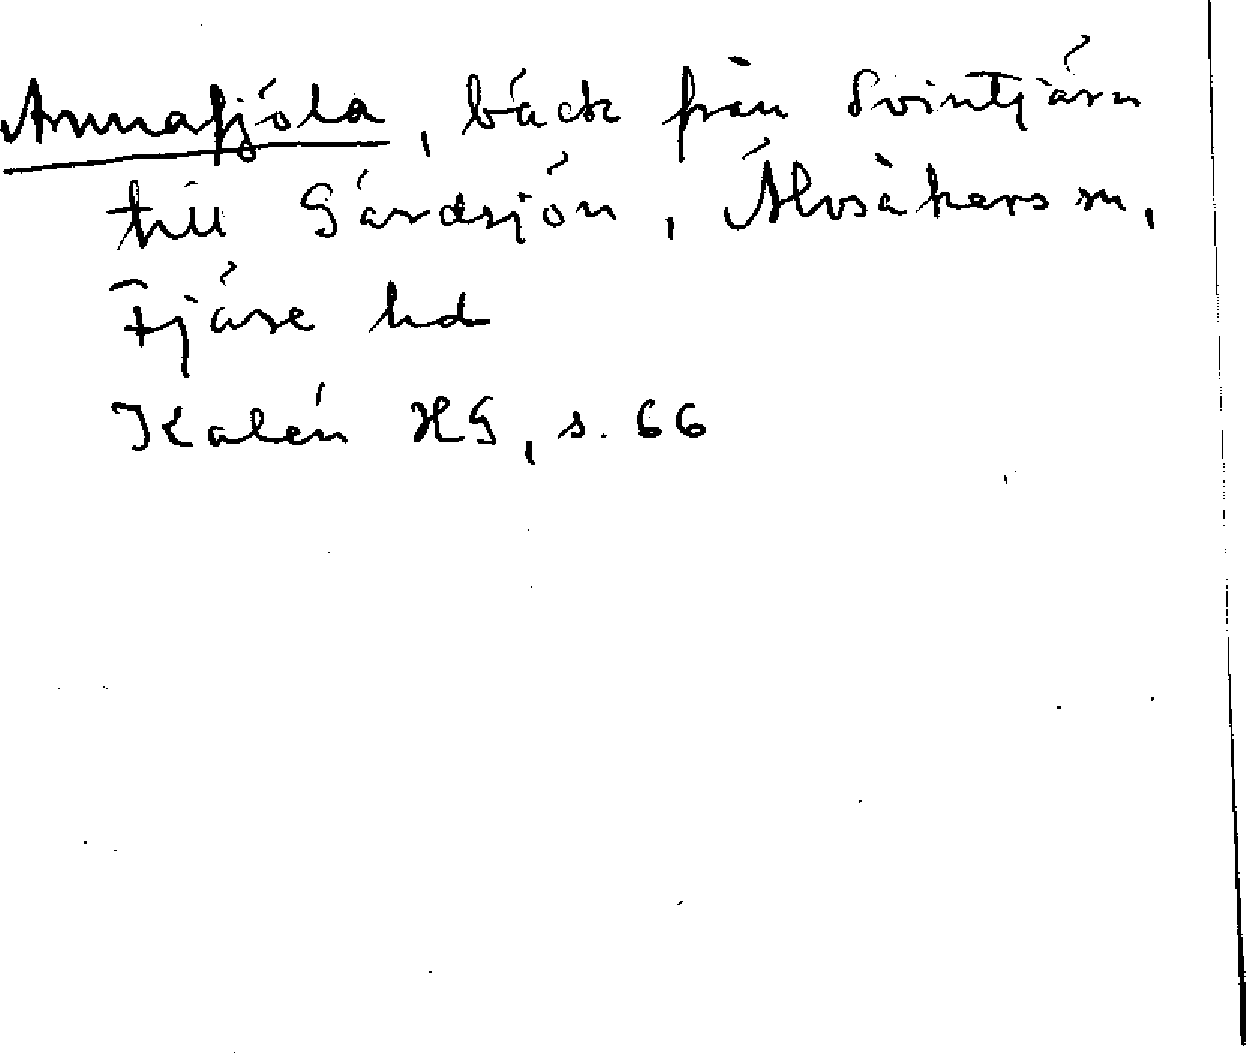 Annafjöla, bäck från Svintjärn
till Gärdsjön, Älvsåkers sn,
Fjäre hd
Kalén HG, s. 66